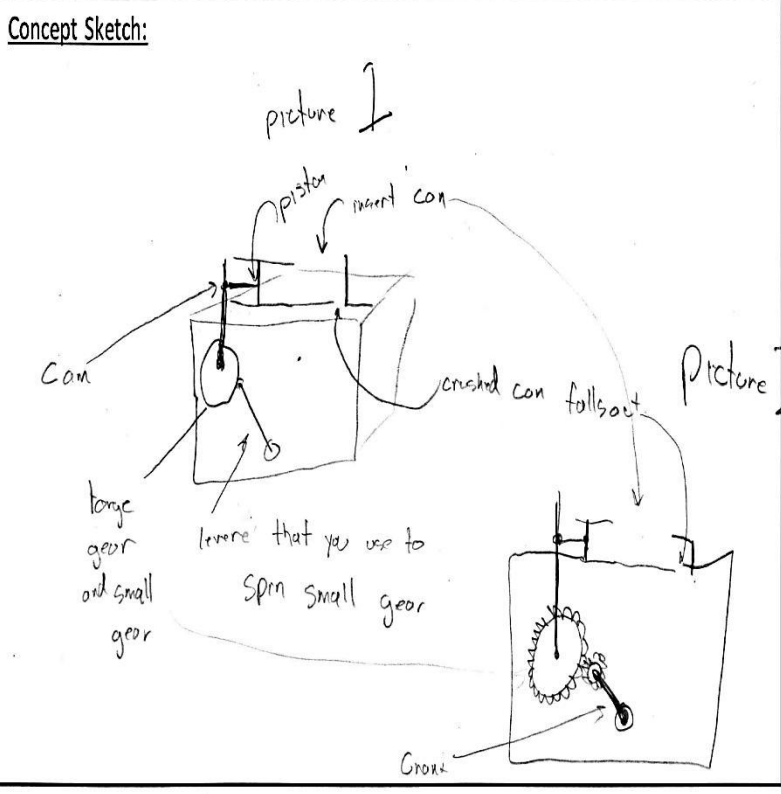 Concept Sketch:
picture 1
piston
insert can
Cam
crushed can falls out
Picture
large
gear
and small
gear
levere that you use to
spin small gear
Crank